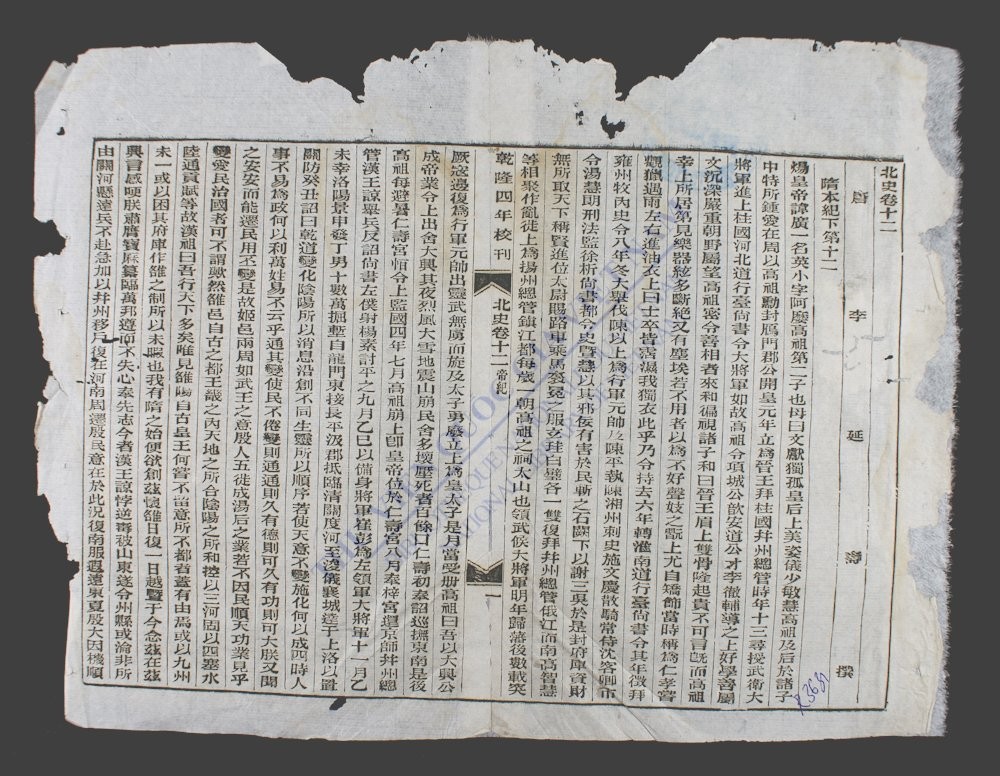 北史卷十二
唐 李 延 壽 撰
隋本紀下第十二
煬皇帝諱廣一名英小字阿㦄高祖第二子也母曰文獻獨孤皇后上美姿儀少敏慧高祖及后於諸子
中特所鍾愛在周以高祖勳封鴈門郡公開皇元年立為晉王拜柱國幷州總管時年十三尋授武衛大
將軍進上柱國河北道行臺尚書令大將軍如故高祖令項城公歆安道公才李徹輔導之上好學善屬
文沉深嚴重朝野屬望高祖密令善相者來和徧視諸子和曰晉王眉上雙骨隆起貴不可言既而高祖
幸上所居第見樂器絃多斷絕又有塵埃若不用者以為不好聲妓之翫上尤自矯飾當時稱為仁孝嘗
觀獵遇雨左右進油衣上曰士卒皆霑濕我獨衣此乎乃令持去六年轉淮南道行臺尚書令其年徵拜
雍州牧內史令八年冬大舉伐陳以上為行軍元帥及陳平執陳湘州刺史施文慶散騎常侍沈客卿市
令湯慧朗刑法監徐析尚書都令史暨慧以其邪佞有害於民斬之石闕下以謝三吳於是封府庫資財
無所取天下稱賢進位太尉賜路車乘馬袞冕之服玄珪白璧各一雙復拜幷州總管俄江南高智慧
等相聚作亂徙上為揚州總管鎮江都每歲一朝高祖之祠太山也領武候大將軍明年歸藩後數載突
乾隆四年校刊
北史卷十二 帝紀
一
厥寇邊復為行軍元帥出靈武無虜而旋及太子勇廢立上為皇太子是月當受冊高祖曰吾以大興公
成帝業令上出舍大興其夜烈風大雪地震山崩民舍多壞壓死者百餘口仁壽初奉詔巡撫東南是後
高祖每避暑仁壽宮恒令上監國四年七月高祖崩上卽皇帝位於仁壽宮八月奉梓宮還京師幷州總
管漢王諒舉兵反詔尚書左僕射楊素討平之九月乙巳以備身將軍崔彭為左領軍大將軍十一月乙
未幸洛陽景申發丁男十數萬掘塹自龍門東接長平汲郡抵臨清關度河至浚儀襄城達于上洛以置
關防癸丑詔曰乾道變化陰陽所以消息沿創不同生靈所以順序若使天意不變施化何以成四時人
事不易為政何以利萬姓易不云乎通其變使民不倦變則通通則久有德則可久有功則可大朕又聞
之安安而能遷民用丕變是故姬邑兩周如武王之意殷人五徙成湯后之業若不因民順天功業見乎
變愛民治國者可不謂歟然雒邑自古之都王畿之內天地之所合陰陽之所和控以三河固以四塞水
陸通貢賦等故漢祖曰吾行天下多矣唯見雒陽自古皇王何嘗不留意所不都者蓋有由焉或以九州
未一或以困其府庫作雒之制所以未暇也我有隋之始便欲創茲懷雒日復一日越曁于今念茲在茲
興言感哽朕肅膺寶厤纂臨萬邦遵而不失心奉先志今者漢王諒悖逆毒被山東遂令州縣或淪非所
由關河懸遠兵不赴急加以幷州移戶復在河南周遷殷民意在於此況復南服遐遠東夏殷大因機順